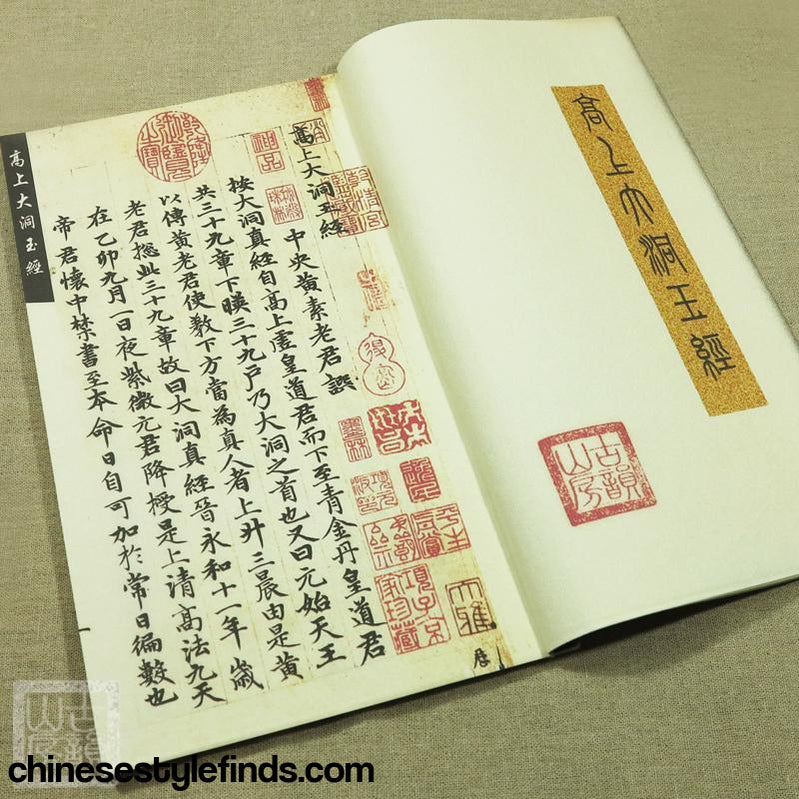 高上大洞玉經
古韻山房
高上大洞玉經
中央黄素老君譔
按大洞真經自高上虛皇道君而下至青金丹皇道君
共三十九章下暎三十九戸乃大洞之首也又曰元始天王
以傳黄老君使教下方當為真人者上升三晨由是黄
老君揔此三十九章故曰大洞真經晉永和十一年歲
在乙卯九月一日夜紫微元君降授是上清高法九天
帝君懷中禁書至本命日自可加於常日徧數也
乾隆御覽之寶
神品
墨林
項子京家珍藏
高上大洞玉經
古韻山房
chinesestylefinds.com